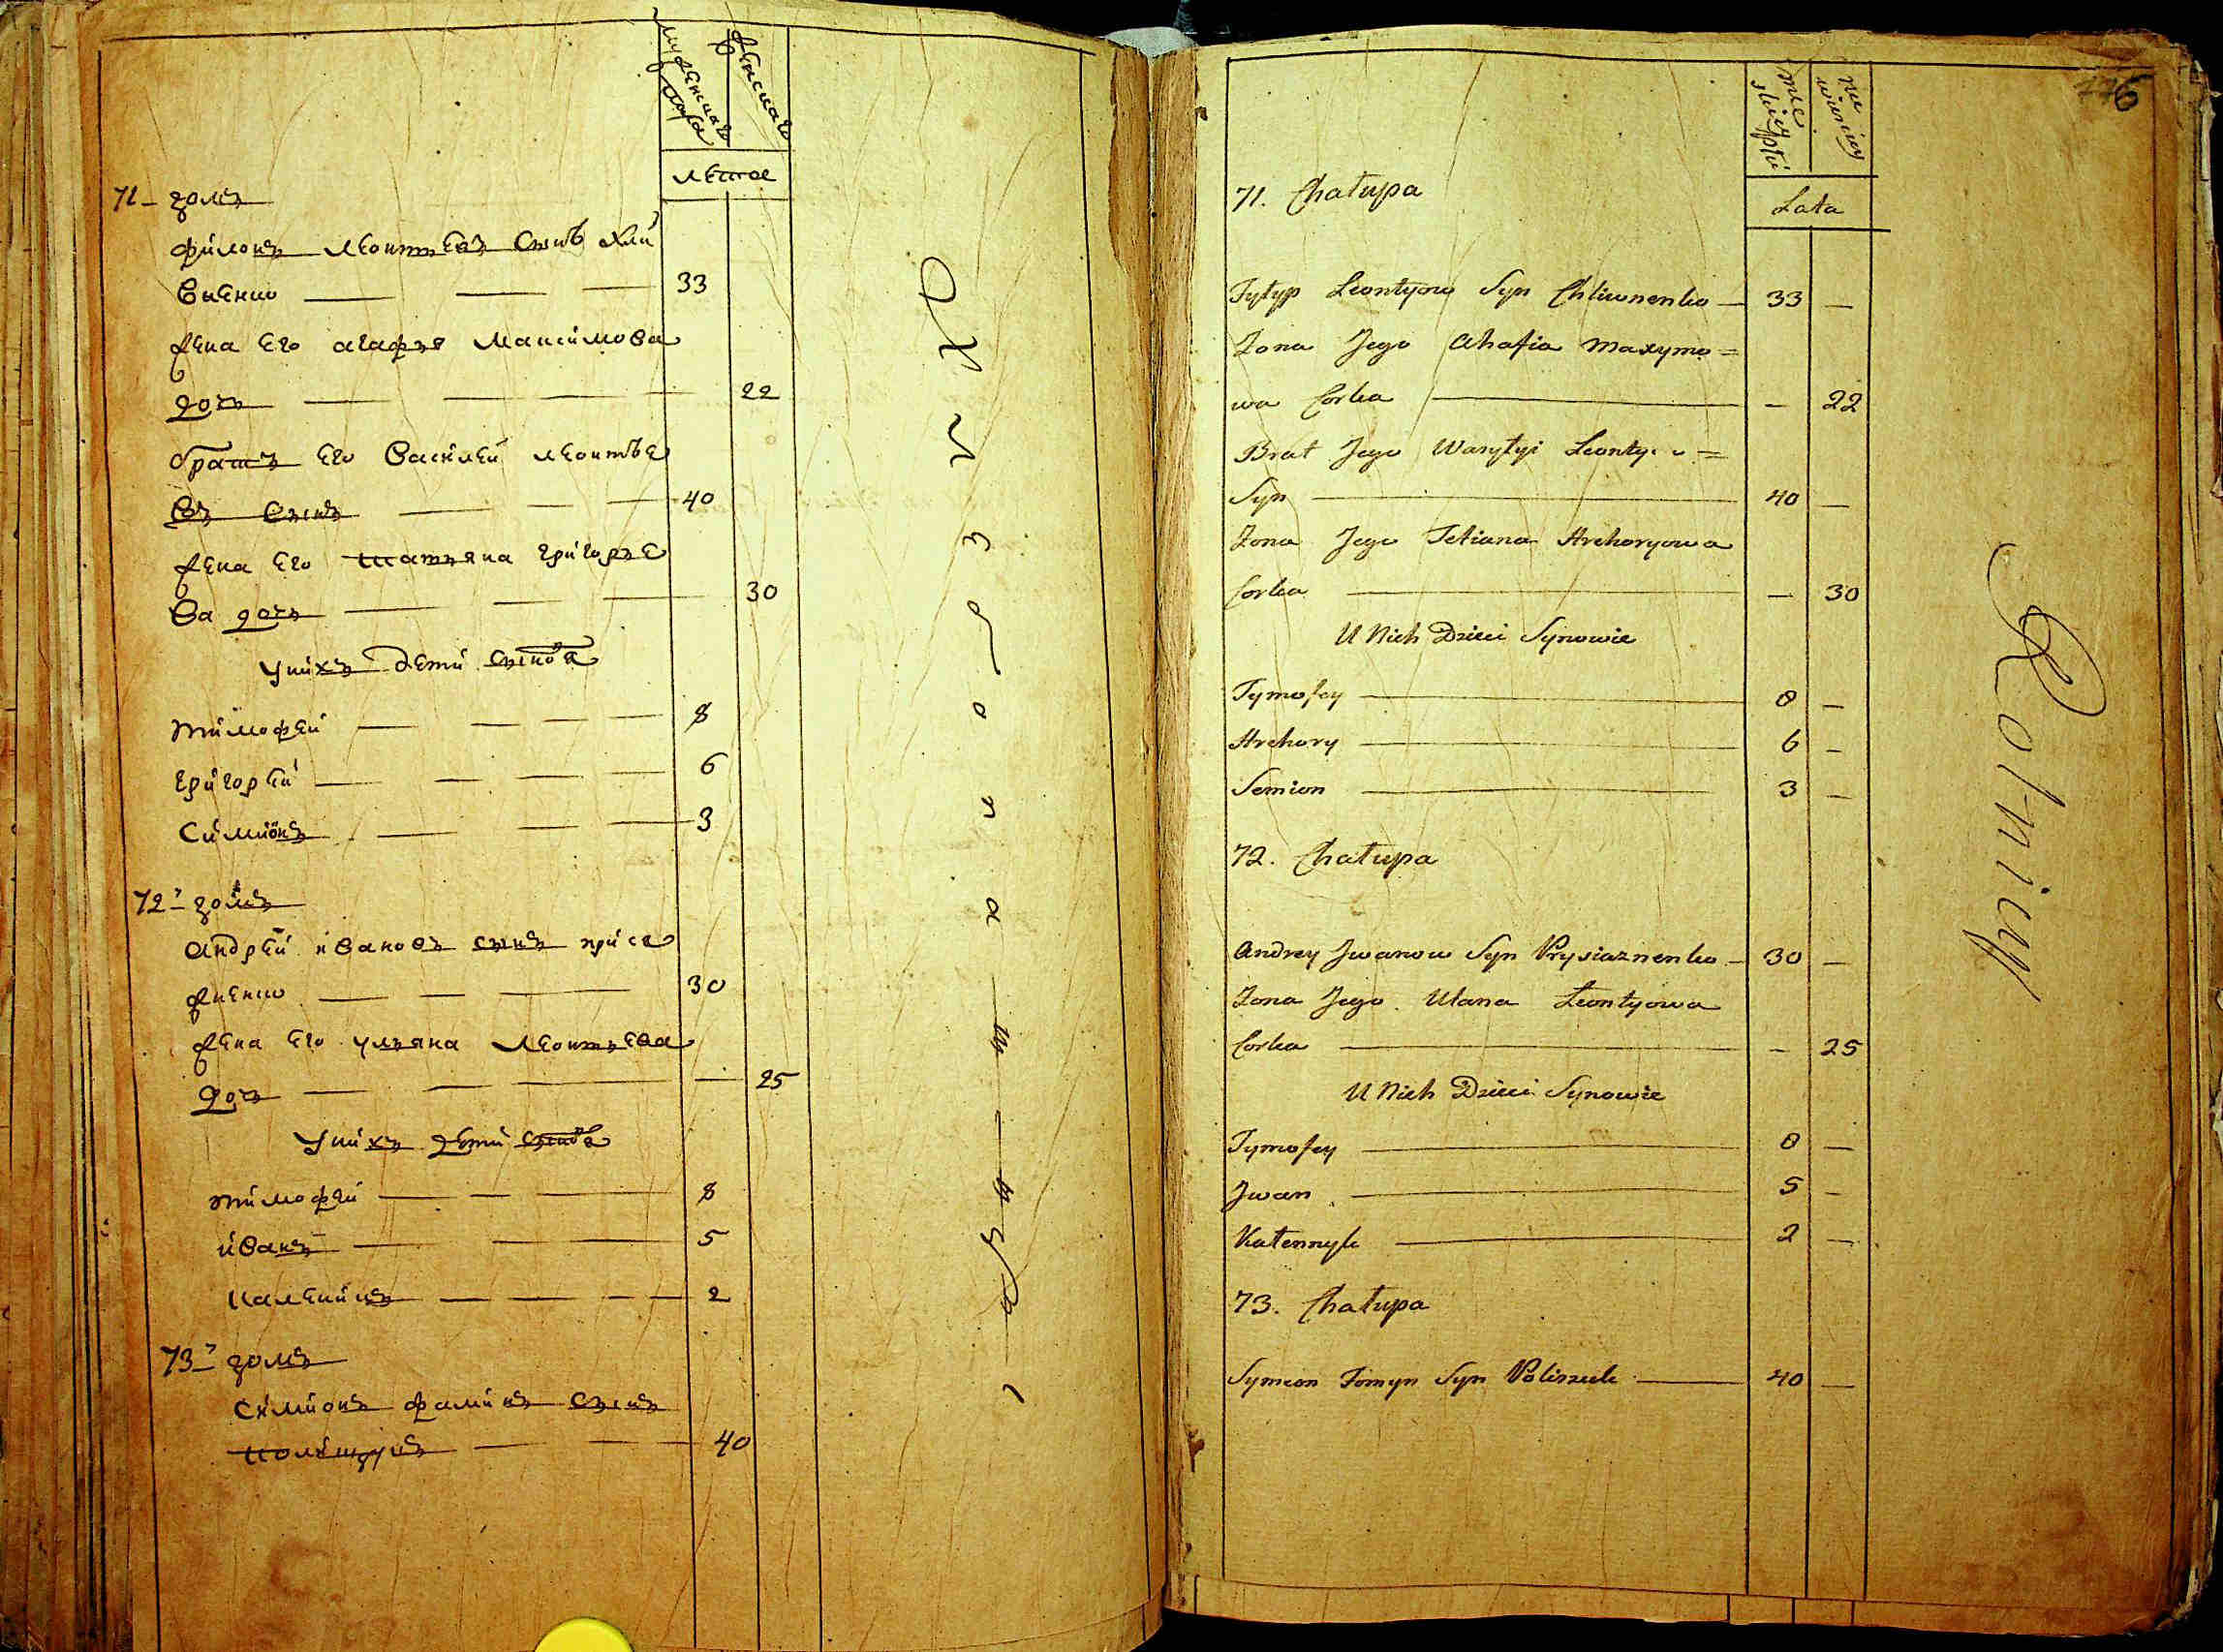 мужеска пола
женска
лѣтое
71 домъ
Филонъ Леонтьевъ сынъ Хли
вненко 33
жена его Агафья Максимова
дочь 22
братъ его Василей Леонтье
въ сынъ 40
жена его Татьяна Григорье
ва дочь 30
у нихъ дети сынов
Тимофей 8
Григорей 6
Симионъ 3
72 домъ
Андрей Ивановъ сынъ Прися
жненко 30
жена его Ульяна Леонтьева
дочь 25
у нихъ дѣти сынов
Тимофей 8
Иванъ 5
Каленикъ 2
73 домъ
Симионъ Фаминъ сынъ
Полищукъ 40
męskiey płci
niewieściey
Lata
71. Chałupa
Syn Chliwnenko 33
Żona Jego Ahafia Maxymo=
wa Corka 22
Brat Jego Wasylyi
Syn 40
Żona Jego Tetiana Hrehoryowa
Corka 30
U Nich Dzieci Synowie
Tymofey 8
Hrehory 6
Semion 3
72. Chałupa
Andrey Jwanow Syn Prysiaznenko 30
Żona Jego Ulana Leontyowa
Corka 25
U Nich Dzieci Synowie
Tymofey 8
Jwan 5
Kalennyk 2
73. Chałupa
Symeon Fomyn Syn Poliszuk 40
Rolnicy